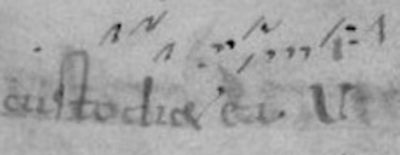 custodia ea. V